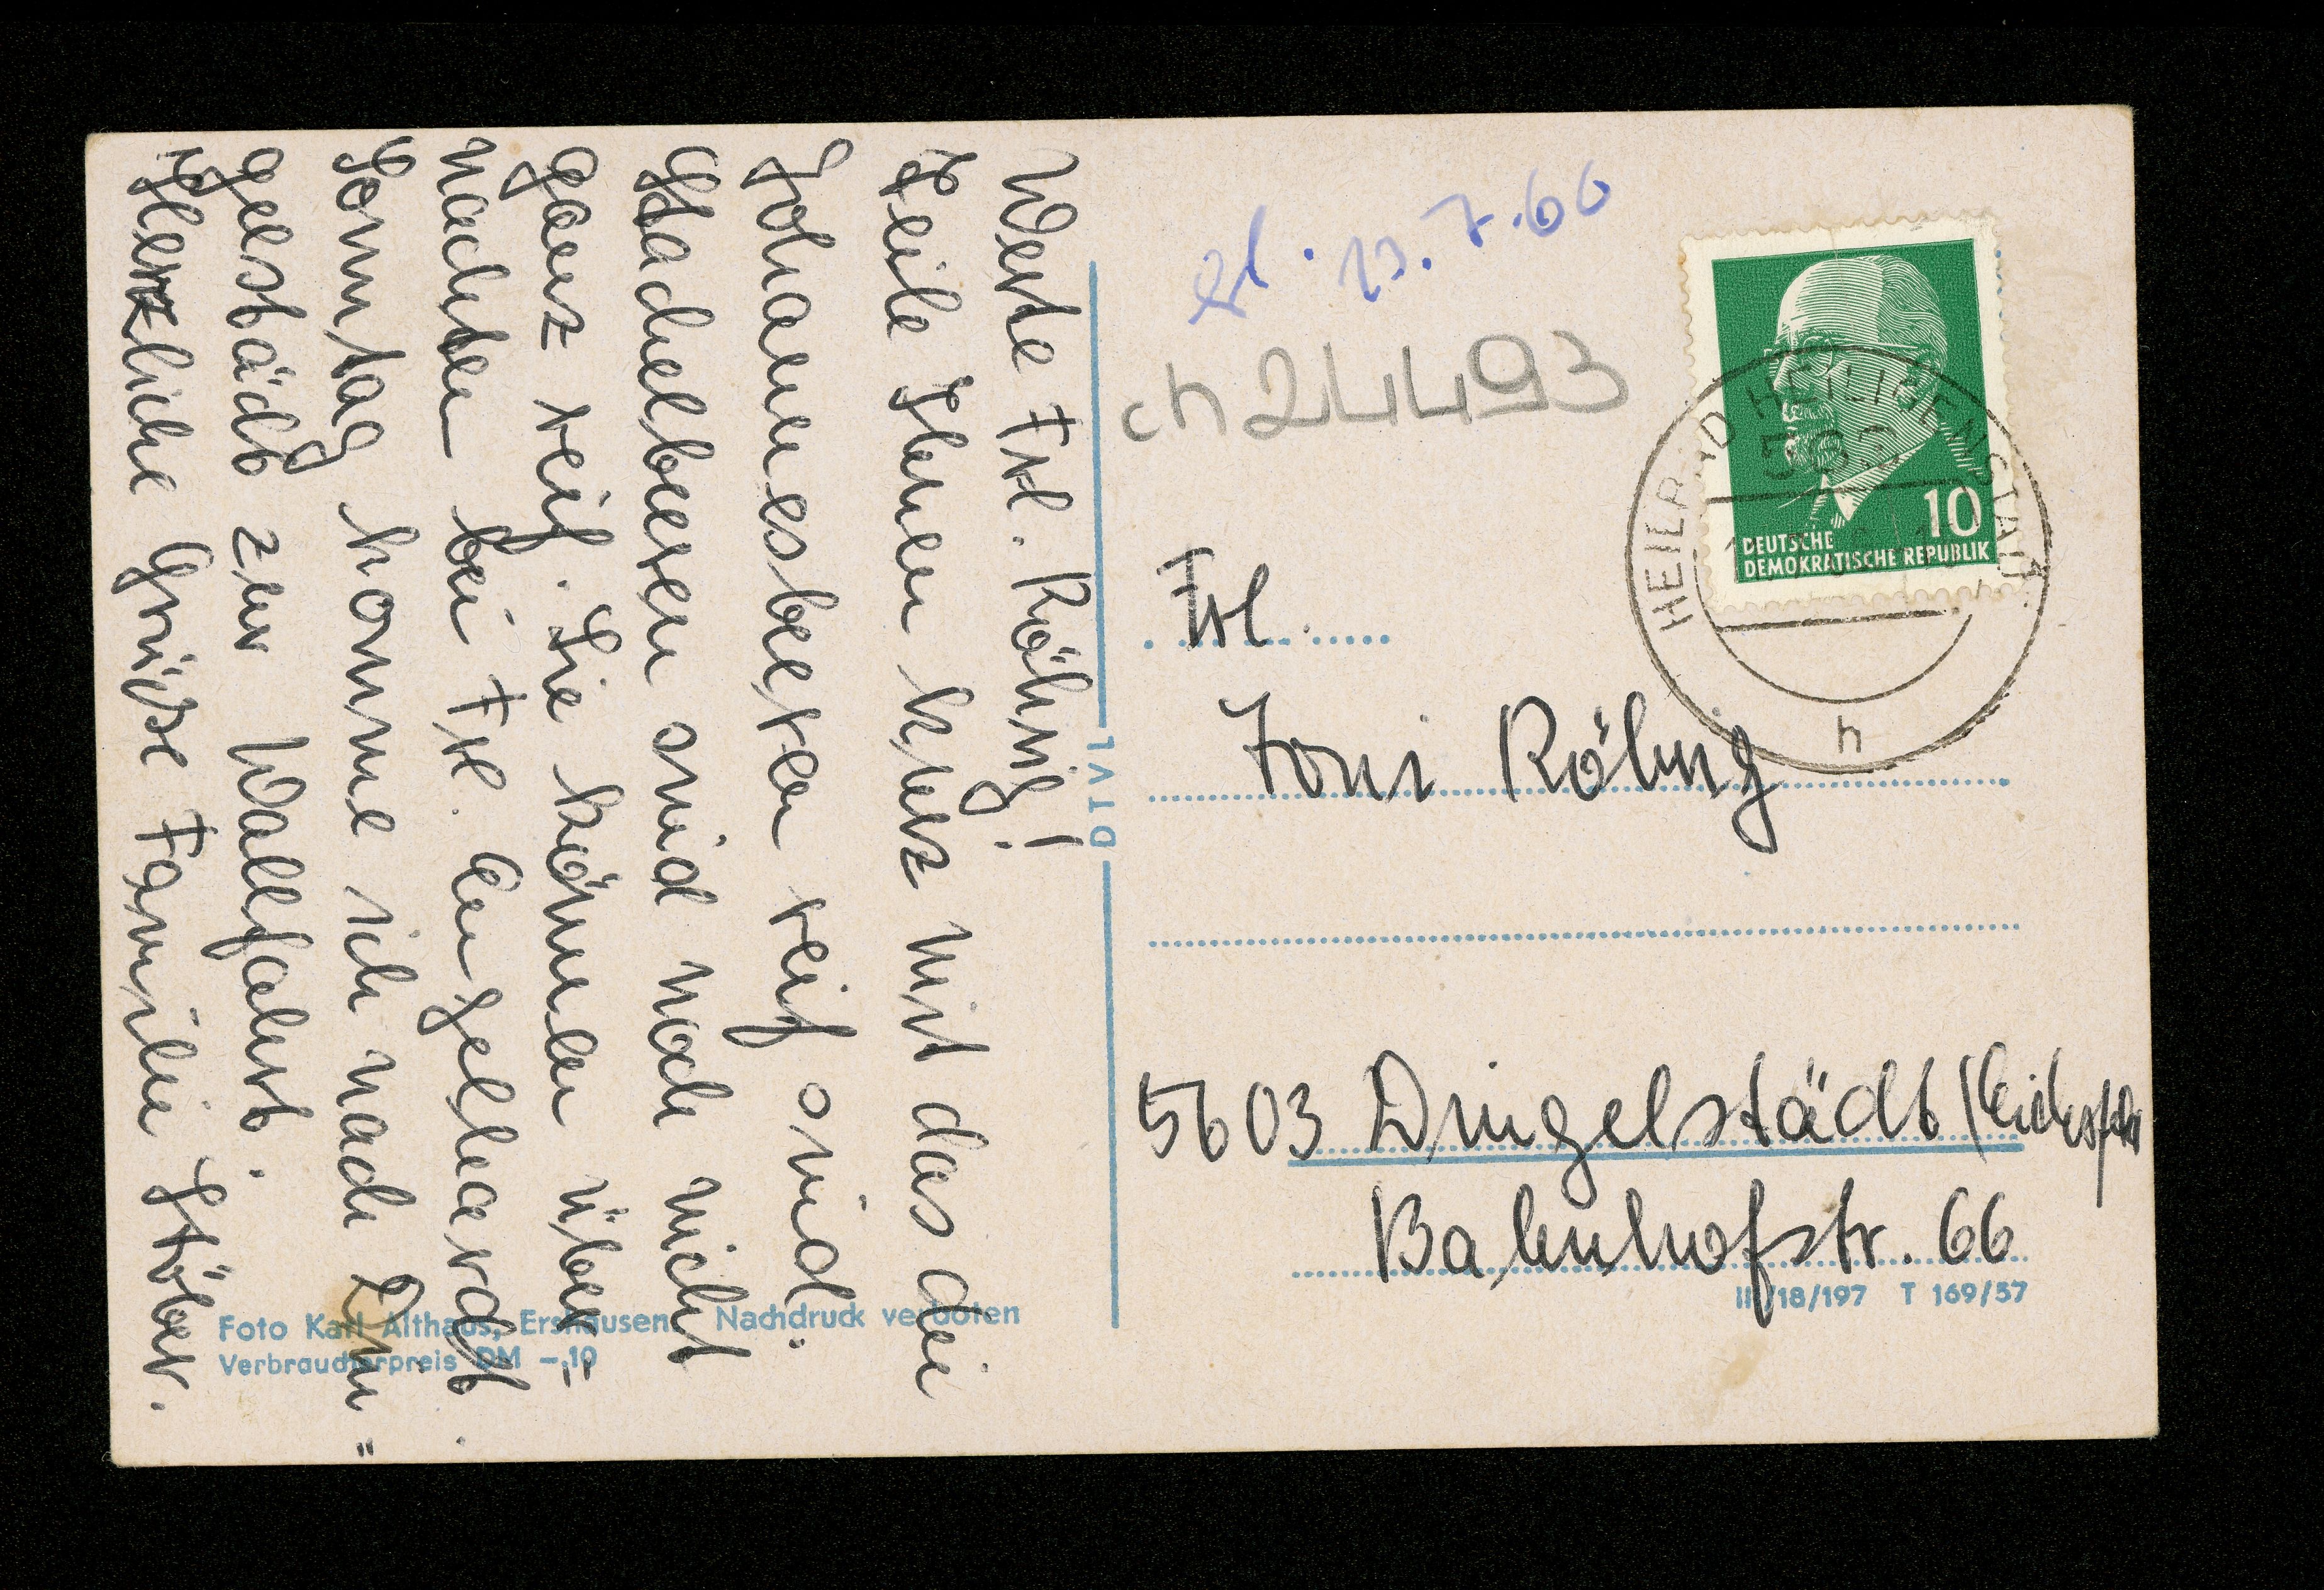 Werte Frl. Röhrig!
Teile Ihnen kurz mit das die
Johannesbeeren reif sind.
Stachelbeeren sind noch nicht
ganz reif. Sie können über-
nachten bei Frl. Engelhardt.
Sonntag komme ich nach Din=
gelstädt zur Wallfahrt.
Herzliche Grüsse Familie Stöber.
VLIO
Foto Karl Althaus, Ershausen. Nachdruck verboten
Verbraucherpreis DM -.10
13.7.66
ch 24493
10
DEUTSCHE
DEMOKRATISCHE REPUBLIK
HEILBAD HEILIGENSTADT
h
Frl.
Toni Röhrig
5603 Dingelstädt / Eichsfeld
Bahnhofstr. 66
III/18/197 T 169/57